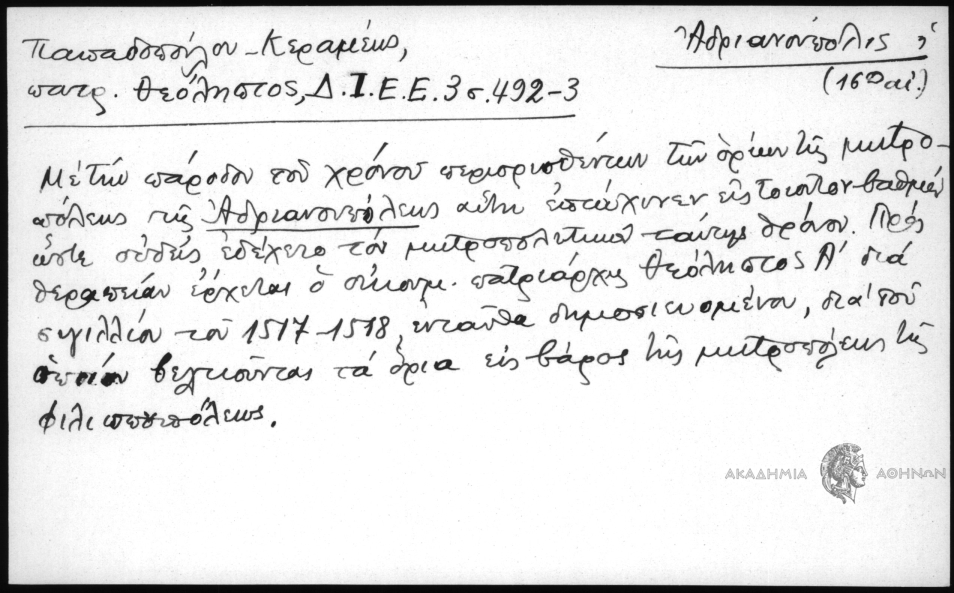 Παπαδοπούλου-Κεραμέως,
πατρ. Θεόληπτος, Δ.Ι.Ε.Ε. 3 σ. 492-3
Ἀδριανούπολις
(16ο αἰ.)
Μέ τήν πάροδον τοῦ χρόνου περιορισθέντων τῶν ὁρίων τῆς μητρο-
πόλεως τῆς Ἀδριανουπόλεως αὕτη ἐπτώχυνεν εἰς τοιοῦτον βαθμόν
ὥστε οὐδείς ἐδέχετο τόν μητροπολιτικόν ταύτης θρόνον. Πρός
θεραπείαν ἔρχεται ὁ οἰκουμ. πατριάρχης Θεόληπτος Α' διά
σιγιλλίου τοῦ 1517-1518, ἐνταῦθα δημοσιευομένου, δι' οὗ
ὁποίου βελτιοῦνται τά ὅρια εἰς βάρος τῆς μητροπόλεως τῆς
Φιλιππουπόλεως.
ΑΚΑΔΗΜΙΑ ΑΘΗΝΩΝ